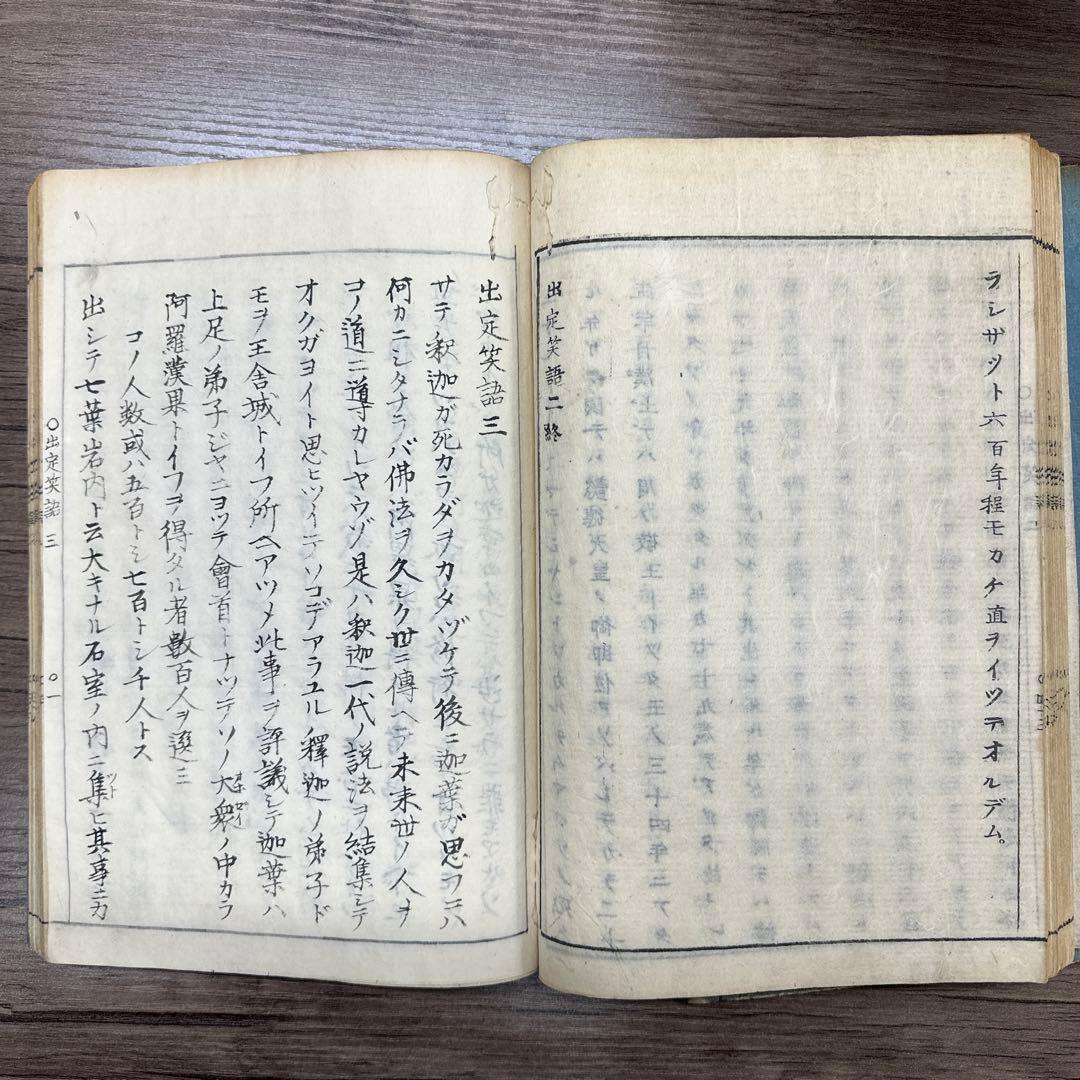 ラシザツト六百年程モカケ直ヲイツテオルデム。
出定笑語二終
出定笑語三
サテ釈迦ガ死カラダヲカタヅケテ後ニ迦葉ガ思フニハ
何カニシタナラバ佛法ヲ久シク世ニ傳ヘテ未来世ノ人ヲ
コノ道ニ導カレヤウゾ是ハ釈迦一代ノ説法ヲ結集シテ
オクガヨイト思ヒツイテソコデアラユル釋迦ノ弟子ド
モヲ王舎城トイフ所ヘアツメ此事ヲ評議シテ迦葉ハ
上足ノ弟子ジヤニヨツテ會首トナツテソノ大衆オホゼイノ中カラ
阿羅漢果トイフヲ得タル者數百人ヲ選ミ
コノ人数或ハ五百トシ七百トシ千人トス
出シテ七葉岩内ト云大キナル石室ノ内ニ集ツドヒ其事ニカ
〇出定笑語 三
〇一